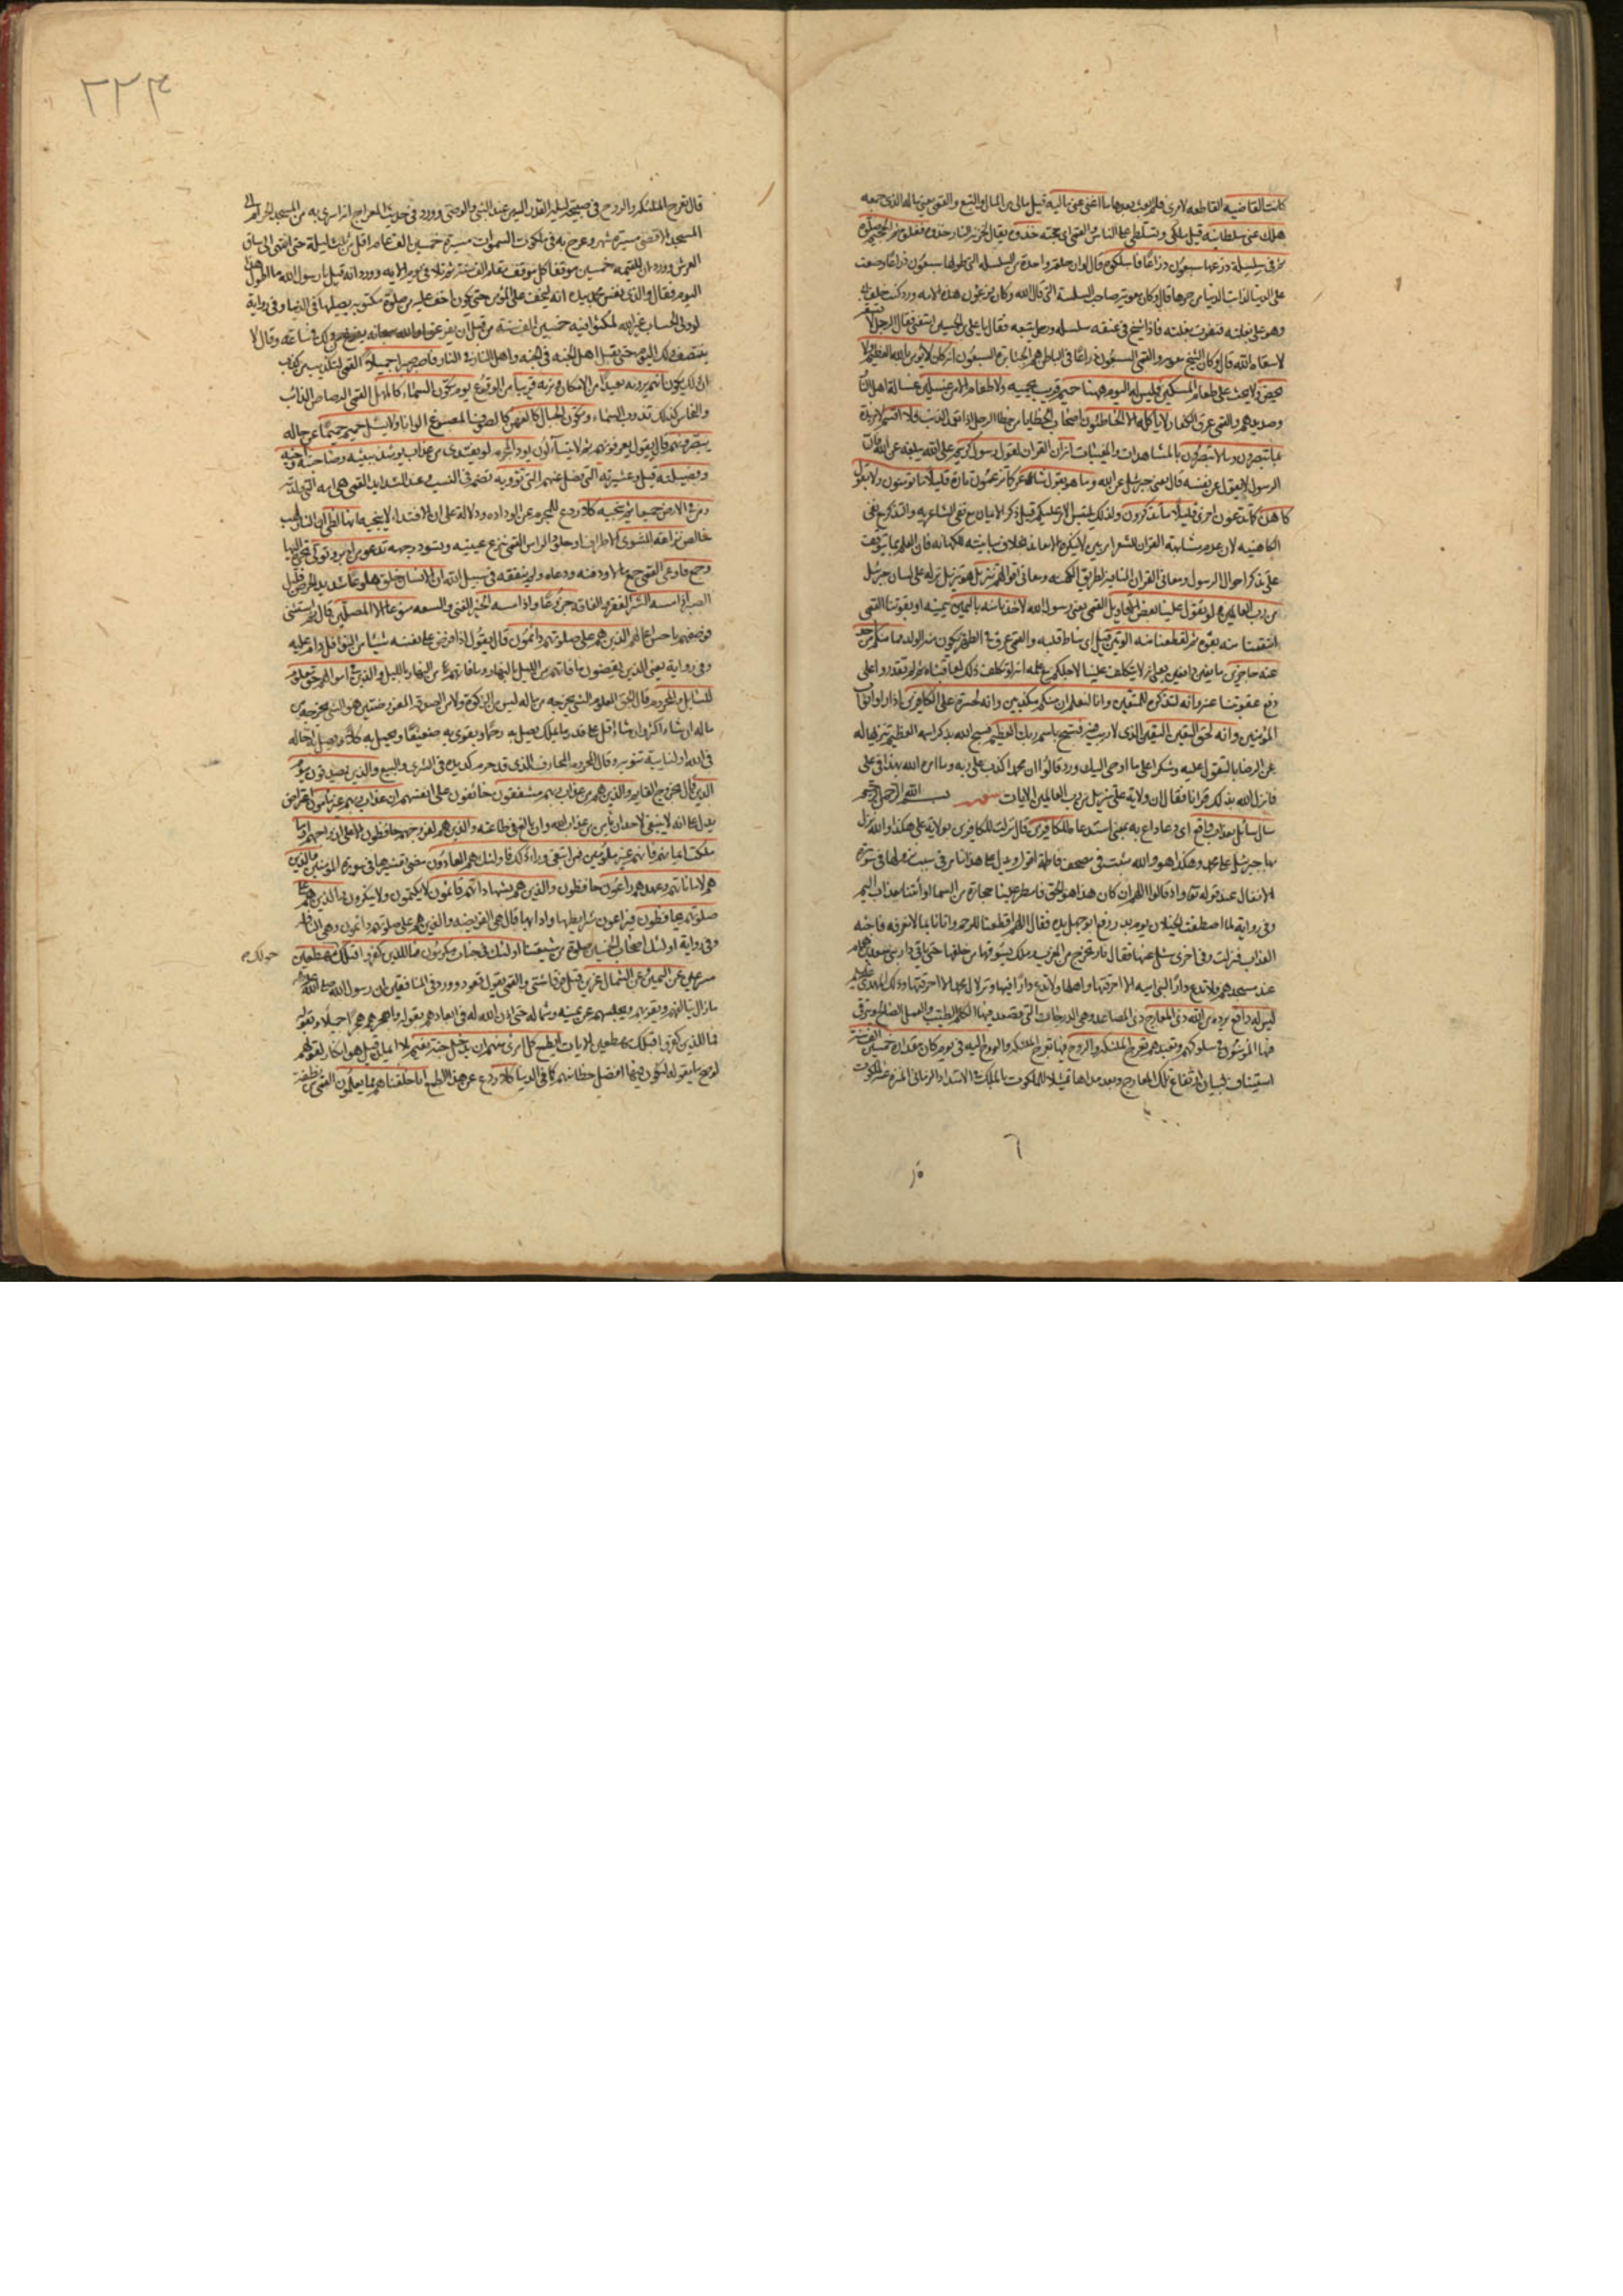 كانت القاضيه القاطعة لامرى فلم ابعث بعدها ما اغنى عنى ماليه قيل مالى من المال والتبع والقمى يعنى ماله الذى جمعه
هلك عنى سلطانيه قيل ملكى وتسلطى على الناس والقمى اى حجته خذوه يقال لخزنة النار خذوه فغلوه ثم الجحيم صلوه
ثم فى سلسلة ذرعها سبعون ذراعًا فاسلكوه قال لو ان حلقة واحدة من السلسلة التى طولها سبعون ذراعا وضعت
على الدنيا لذابت الدنيا من حرها قال وكان معوية صاحب السلسلة التى قال الله وكان فرعون هذه الامه وورد كنت خلف ابى
وهو على بغلته فنفرت بغلته فاذا شيخ فى عنقه سلسله ورجل يتبعه فقال يا على بن الحسين اسقنى فقال الرجل لا
لا سقاه الله قال وكان الشيخ معويه والقمى السبعون ذراعًا فى الباطن هم الجبابرة السبعون انه كان لا يؤمن بالله العظيم ولا
يحض ولا يحث على طعام المسكين فليس له اليوم ههنا حميم قريب يحميه ولا طعام الا من غسلين غسالة اهل النار
وصديدهم والقمى عرق الكفار لا ياكله الا الخاطئون اصحاب الخطايا من خطا الرجل اذا تعمد الذنب فلا اقسم لا مزيدة
بما تبصرون وما لا تبصرون بالمشاهدات والمغيبات انه ان القران لقول رسول كريم على الله يبلغه عن الله فان
الرسول لا يقول عن نفسه قال يعنى جبرئيل عن الله وما هو بقول شاعر كما تزعمون تارة قليلًا ما تؤمنون ولا بقول
كاهن كما تدعون اخرى قليلًا ما تذكرون ولذلك يلتبس الامر عليكم قيل ذكر الايمان مع نفى الشاعريه والتذكر مع نفى
الكاهنيه لان عدم مشابهة القران للشعر امر بين لا ينكره الا معاند بخلاف مباينته للكهانه فان العلم بها يتوقف
على تذكر احوال الرسول ومعانى القران المنافية لطريق الكهنه ومعانى اقوالهم تنزيل هو تنزيل نزله على لسان جبرئيل
من رب العالمين ولو تقول علينا بعض الاقاويل القمى يعنى رسول الله لاخذنا منه باليمين بيمينه او بقوتنا القمى
انتقمنا منه بقوه ثم لقطعنا منه الوتين قيل اى نياط قلبه والقمى عرق فى الظهر يكون منه الولد فما منكم من احد
عنه حاجزين مانعين دافعين يعنى انه لا يتكلف علينا لاجلكم مع علمه انه لو تكلف ذلك لعاقبناه ثم لم تقدروا على
دفع عقوبتنا عنه وانه لتذكرة للمتقين وانا لنعلم ان منكم مكذبين وانه لحسرة على الكافرين اذا راوا ثواب
المؤمنين وانه لحق اليقين اليقين الذى لا ريب فيه فسبح باسم ربك العظيم فسبح الله بذكر اسمه العظيم تنزيها له
عن الرضا بالتقول عليه وشكرا على ما اوحى اليك وورد قالوا ان محمدا كذب على ربه وما امره الله بهذا فى على
فانزل الله بذلك قرانا فقال ان ولاية على تنزيل من رب العالمين الايات سوره بسم الله الرحمن الرحيم
سال سائل بعذاب واقع اى دعا داع به بمعنى استدعاه للكافرين قال نزلت للكافرين بولاية على هكذا والله نزل
بها جبرئيل على محمد وهكذا هو والله مثبت فى مصحف فاطمة اقول ويدل على هذا ما مر فى سبب نزولها فى سورة
الانفال عند قوله تعالى واذ قالوا اللهم ان كان هذا هو الحق فامطر علينا حجارة من السما او ائتنا بعذاب اليم
وفى رواية لما اصطفت الخيلان يوم بدر رفع ابو جهل يده فقال اللهم اقطعنا للرحم واتانا بما لا نعرفه فاحنه
العذاب فنزلت وفى اخرى سئل عنها فقال نار تخرج من المغرب وملك يسوقها من خلفها حتى ياتى دار بنى سعد بن همام
عند مسجدهم فلا تدع دارًا لبنى اميه الا احرقتها واهلها ولا تدع دارًا فيها وتر لال محمد الا احرقتها وذلك المهدى عليه
ليس له دافع يرده من الله ذى المعارج ذى المصاعد وهى الدرجات التى يصعد فيها الكلم الطيب والعمل الصالح ويترقى
فيها المؤمنون فى سلوكهم وتعبدهم تعرج الملئكه والروح فيها تعرج الملئكه والروح اليه فى يوم كان مقداره خمسين الف سنة
استيناف لبيان ارتفاع تلك المعارج وبعد مداها تمثيلا للملكوت بالملك فى الامتداد الزمانى المنزه عنه الملكوت
٢٢٤
قال تعرج الملئكة والروح فى صبيحة ليلة القدر اليه من عند النبى والوصى وورد فى حديث المعراج انه اسرى به من المسجد الحرام الى
المسجد الاقصى مسيرة شهر وعرج به فى ملكوت السموات مسيرة خمسين الف عام اقل من ثلث ليلة حتى انتهى الى ساق
العرش وورد ان للقيمه خمسين موقفا كل موقف مقداره الف سنة ثم تلا فى يوم الايه وورد انه قيل يا رسول الله ما اطول هذا
اليوم فقال والذى نفس محمد بيده انه ليخف على المؤمن حتى يكون اخف عليه من صلوة مكتوبة يصليها فى الدنيا وفى رواية
لو ولى الحساب غير الله لمكثوا فيه خمسين الف سنة من قبل ان يفرغوا والله سبحانه يفرغ من ذلك فى ساعه وقال لا
ينتصف ذلك اليوم حتى يقيل اهل الجنه فى الجنه واهل النار فى النار فاصبر صبرا جميلًا القمى لتكذيب من كذب
ان ذلك يكون انهم يرونه بعيدًا من الامكان ونريه قريبًا من الوقوع يوم تكون السماء كالمهل القمى الرصاص الذائب
والنحاس كذلك تذوب السماء وتكون الجبال كالعهن كالصوف المصبوغ الوانا ولا يسئل حميم حميمًا عن حاله
يبصرونهم قال يقول يعرفونهم ثم لا يتساءلون يود المجرم لو يفتدى من عذاب يومئذ ببنيه وصاحبته واخيه
وفصيلته قيل وعشيرته التى فصل عنهم التى تؤويه تضمه فى النسب وعند الشدايد القمى هى امه التى ولدته
ومن فى الارض جميعا ثم ينجيه كلا ردع للمجرم عن الودادة ودلالة على ان الافتداء لا ينجيه انها لظى ان النار لهب
خالص نزاعة للشوى الاطراف او جلد الراس القمى تنزع عينيه وتسود وجهه تدعو من ادبر وتولى تجره اليها
وجمع فاوعى القمى جمع مالا ودفنه ودعاه ولم ينفقه فى سبيل الله ان الانسان خلق هلوعًا شديد الحرص قليل
الصبر اذا مسه الشر الفقر والفاقه جزوعًا واذا مسه الخير الغنى والسعه منوعا الا المصلين قال ثم استثنى
فوصفهم باحسن اعمالهم الذين هم على صلوتهم دائمون قال يقول اذا فرض على نفسه شيئا من النوافل دام عليه
وفى رواية يعنى الذين يقضون ما فاتهم من الليل بالنهار وما فاتهم من النهار بالليل والذين فى اموالهم حق معلوم
للسايل والمحروم قال الحق المعلوم الشئ يخرجه من ماله ليس من الزكوة ولا من الصدقة المفروضتين هو الشئ يخرجه من
ماله ان شاء اكثر وان شاء اقل على قدر ما يملك يصل به رحمًا ويقوى به ضعيفًا ويحمل به كلًا ويصل به اخا له
فى الله او لنايبة تنوبه وقال المحروم المحارف الذى قد حرم كد يده فى الشرى والبيع والذين يصدقون بيوم
الدين قال بخروج القايم والذين هم من عذاب ربهم مشفقون خائفون على انفسهم ان عذاب ربهم غير مأمون اعتراض
يدل على انه لا ينبغى لاحد ان يأمن من عذاب الله وان بالغ فى طاعته والذين هم لفروجهم حافظون الا على ازواجهم او ما
ملكت ايمانهم فانهم غير ملومين فمن ابتغى وراء ذلك فاولئك هم العادون مضى تفسيرها فى سورة المؤمنين والذين
هم لاماناتهم وعهدهم راعون حافظون والذين هم بشهاداتهم قائمون لا يكتمون ولا ينكرون والذين هم على
صلوتهم يحافظون فيراعون شرايطها وادابها قال هى الفريضه والذين هم على صلوتهم دائمون وهى النافلة
وفى رواية اولئك اصحاب الخمسين صلوة من شيعتنا اولئك فى جنات مكرمون فمال الذين كفروا قبلك مهطعين
حولك
مسرعين عن اليمين وعن الشمال عزين قيل فرقا شتى والقمى يقول قعود وورد فى المنافقين ان رسول الله صلى الله عليه
مازال يتالفهم ويقربهم ويجلسهم عن يمينه وشماله حتى اذن الله له فى ابعادهم بقوله واهجرهم هجرًا جميلًا وبقوله
فمال الذين كفروا قبلك مهطعين الايات ايطمع كل امرى منهم ان يدخل جنة نعيم بلا ايمان قيل هو انكار لقولهم
لو صح ما يقوله لنكون فيها افضل حظا منهم كما فى الدنيا كلا ردع عن هذا الطمع انا خلقناهم مما يعلمون القمى من نطفة